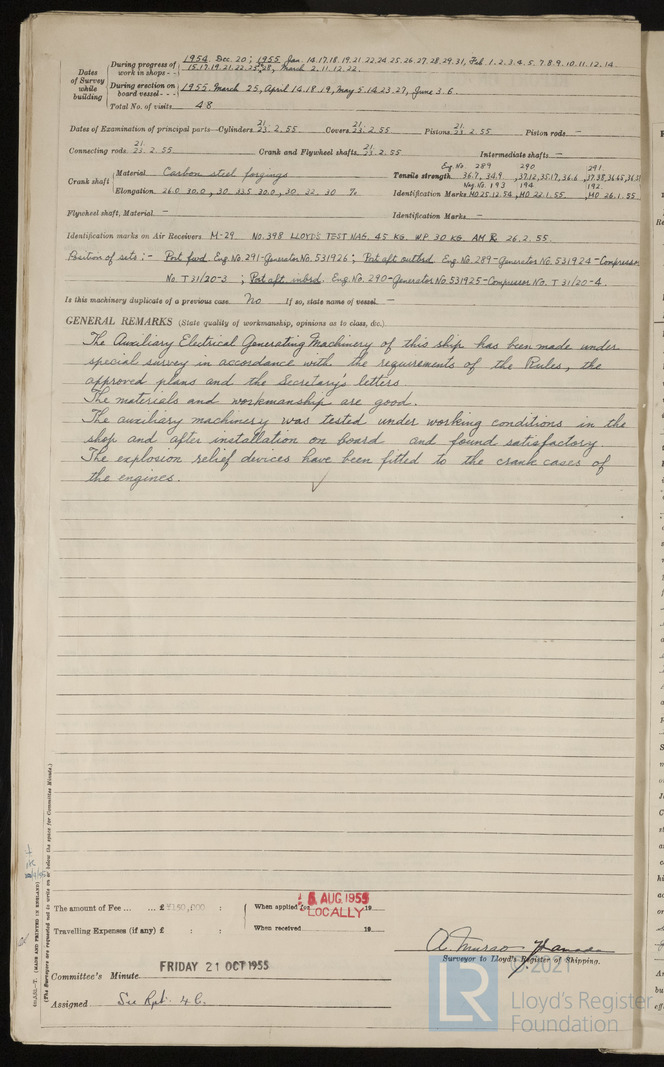 Dates of Survey while building
During progress of work in shops - - 1954. Dec. 20; 1955 Jan. 14.17.18.19.21.22.24.25.26.27.28.29.31, Feb. 1.2.3.4.5.7.8.9.10.11.12.14
15.17.19.21.22.23.28, March 2.11.12.22.
During erection on board vessel - - - 1955. March 25, April 14.18.19, May 5.14.23.27, June 3.6.
Total No. of visits 48
Dates of Examination of principal parts—Cylinders 21. 23. 2. 55 Covers 21. 23. 2. 55 Pistons 21. 23. 2. 55 Piston rods —
Connecting rods 21. 23. 2. 55 Crank and Flywheel shafts 21. 23. 2. 55 Intermediate shafts —
Eng No. 289 290 291
Crank shaft Material Carbon steel forgings Tensile strength 36.7, 34.9, 37.12, 35.17, 36.6, 37.38, 36.65,
No. 193 194 192
Elongation 26.0 30.0, 30. 33.5 30.0, 30. 22. 30 % Identification Marks MO 25.12.54, MO 22.1.55, MO 26.1.55
Flywheel shaft, Material — Identification Marks —
Identification marks on Air Receivers M-29 No. 398 LLOYD'S TEST NAG. 45 KG. W.P. 30 KG. AM R 26.2.55.
Position of sets :- Port fwd Eng. No. 291-Generator No. 531926; Port aft outbrd Eng. No. 289-Generator No. 531924-Compressor
No T 31/20-3; Port aft inbrd. Eng. No. 290-Generator No 531925-Compressor No. T 31/20-4.
Is this machinery duplicate of a previous case. No If so, state name of vessel. —
GENERAL REMARKS (State quality of workmanship, opinions as to class, &c.)
The Auxiliary Electrical Generating Machinery of this ship has been made under
special survey in accordance with the requirements of the Rules, the
approved plans and the Secretary's letters.
The materials and workmanship are good.
The auxiliary machinery was tested under working conditions in the
shop and after installation on board and found satisfactory.
The explosion relief devices have been fitted to the crank cases of
the engines.
(MADE AND PRINTED IN ENGLAND)
(The Surveyors are requested not to write on or below the space for Committee Minute.)
The amount of Fee ... ... £ ¥150,000 : When applied for 19
5 AUG 1955
LOCALLY
Travelling Expenses (if any) £ : : When received 19
Surveyor to Lloyd's Register of Shipping.
Committee's Minute FRIDAY 21 OCT 1955
Assigned See Rpt. 4 C.
© 2021
LR
Lloyd's Register
Foundation